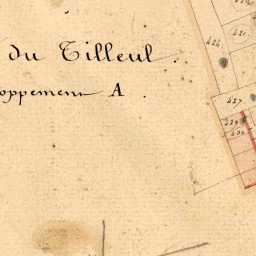 du Tilleul
oppement A
424
421
427
429
430